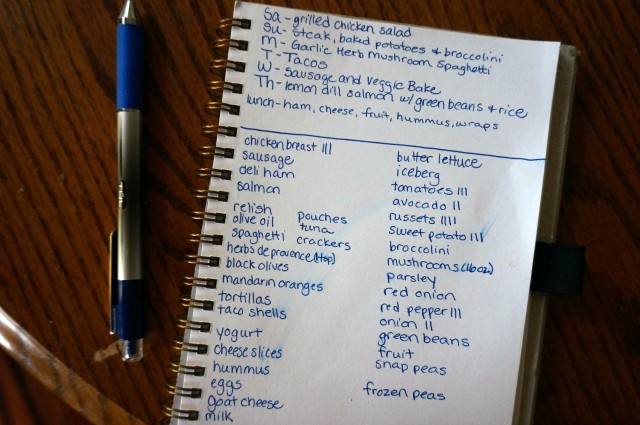 Sa - grilled chicken salad
Su - steak, baked potatoes + broccolini
M - Garlic Herb mushroom Spaghetti
T - Tacos
W - sausage and veggie Bake
Th - lemon dill salmon w/ green beans + rice
lunch - ham, cheese, fruit, hummus, wraps
chicken breast III
sausage
deli ham
salmon
relish
olive oil pouches
spaghetti tuna
herbs de provence (1tsp) crackers
black olives
mandarin oranges
tortillas
taco shells
yogurt
cheese slices
hummus
eggs
goat cheese
milk
butter lettuce
iceberg
tomatoes III
avocado II
russets IIII
sweet potato III
broccolini
mushrooms (16oz)
parsley
red onion
red pepper III
onion II
green beans
fruit
snap peas
frozen peas